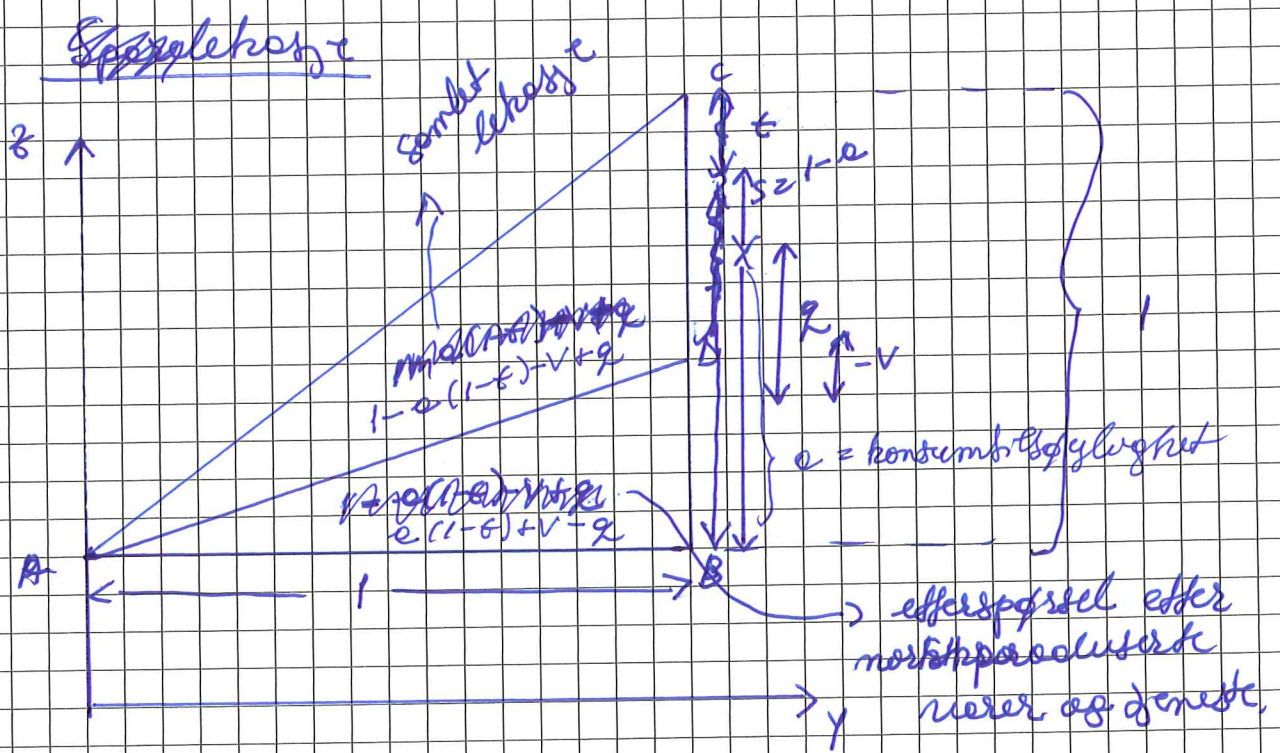 samlet
lekasse
z
C
t
s=1-a
X
q
-v
1
D
1-a(1-t)-v+q
a = konsumtilbøyelighet
a(1-t)+v-q
A
B
1
etterspørsel etter
norskproduserte
varer og tjeneste.
y